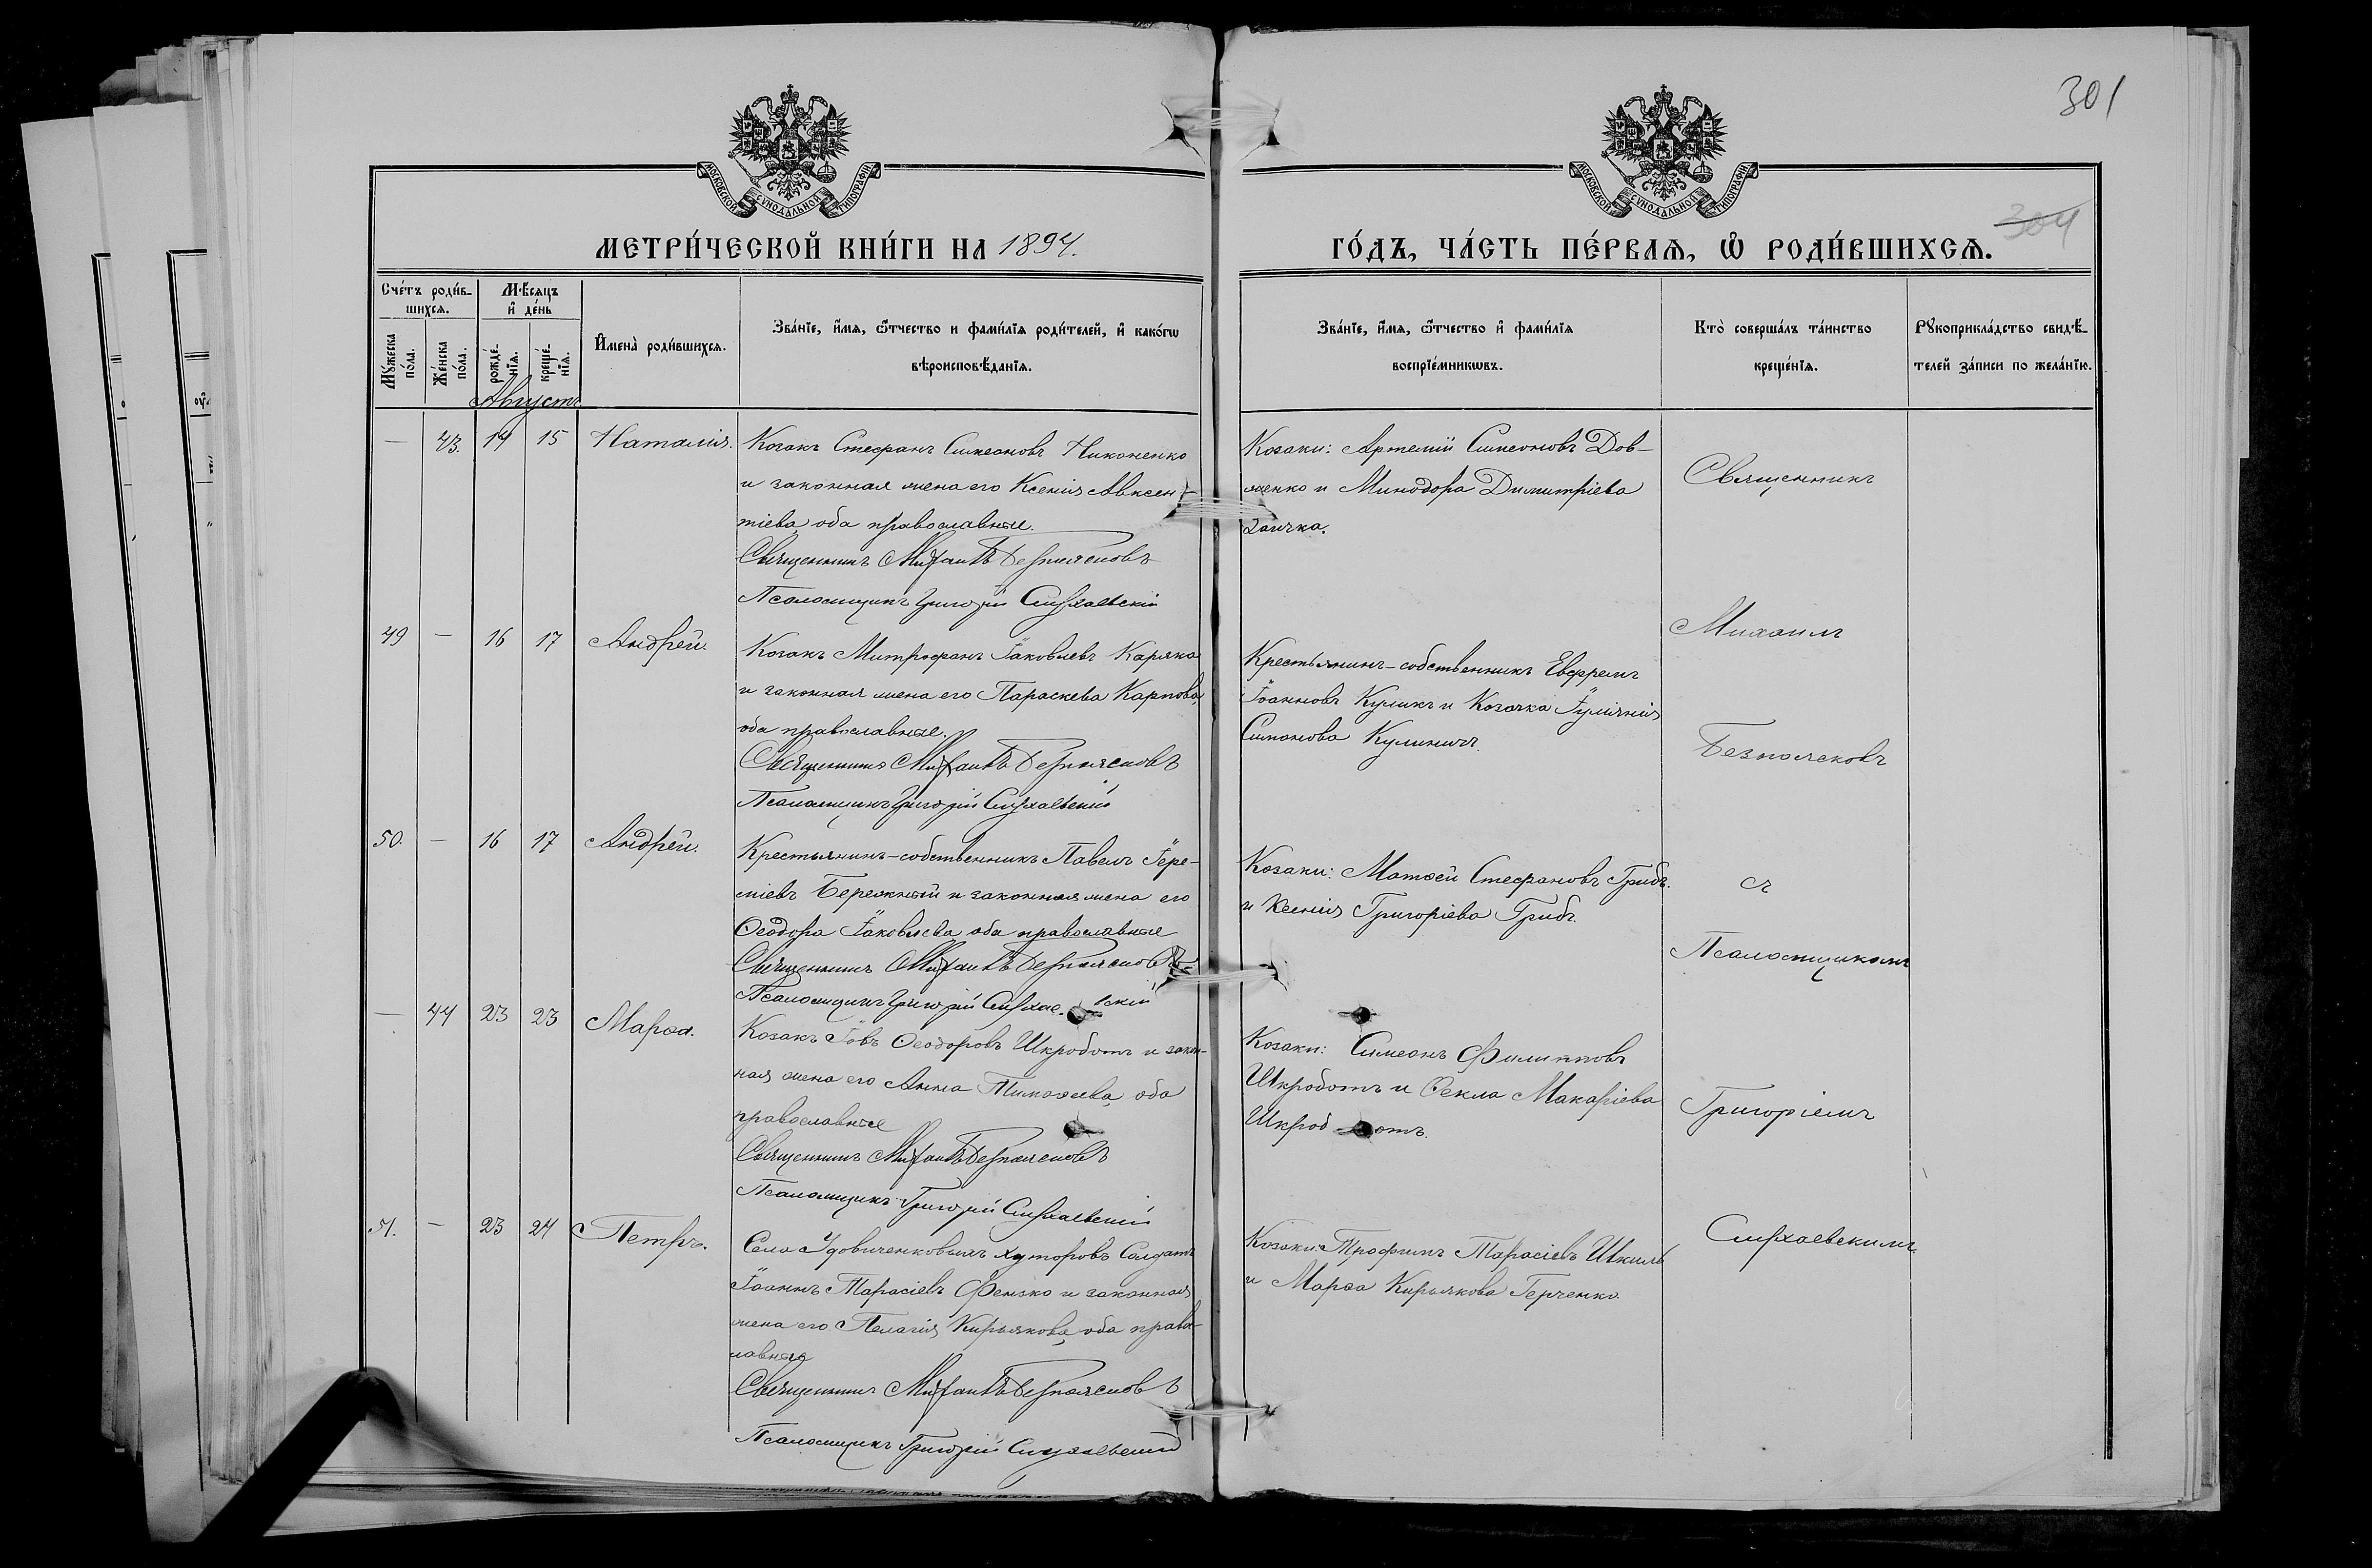 301
304
МОСКОВСКОЙ СѴНОДАЛЬНОЙ ТИПОГРАФІИ
МОСКОВСКОЙ СѴНОДАЛЬНОЙ ТИПОГРАФІИ
МЕТРИ́ЧЕСКОЙ КНИ́ГИ НА 1894.
ГО́ДЪ, ЧА́СТЬ ПЕ́РВАѦ, Ѽ РОДИ́ВШИХСѦ.
Сче́тъ роди́в-
шихсѧ.
Мꙋ́жеска по́ла.
Же́нска по́ла.
Мѣ́сѧцъ
и҆ де́нь
рожде́-нїѧ.
креще́-нїѧ.
И҆мена̀ роди́вшихсѧ.
Зва́нїе, и҆́мѧ, ѻ҆́тчество и фами́лїѧ роди́телей, и҆ како́гѡ
вѣроисповѣ́данїѧ.
Зва́нїе, и҆́мѧ, ѻ҆́тчество и҆ фами́лїѧ
воспрїе́мникѡвъ.
Кто̀ соверша́лъ та́инство
креще́нїѧ.
Рꙋкоприкла́дство свидѣ́-
телей за́писи по жела́нїю.
Августъ
— 43. 14 15 Наталія.
Козакъ Стефанъ Симеоновъ Никоненко
и законная жена его Ксенія Авксен-
тіева оба православные.
Священникъ Михаилъ Безпалсковъ
Псаломщикъ Григорій
Козаки: Артемій Симеоновъ Дов-
женко и Минодора Димитріева
Заичка.
Священникъ
49 — 16 17 Андрей.
Козакъ Митрофанъ Іаковлевъ Каряка
и законная жена его Параскева Карпова,
оба православные.
Священникъ Михаилъ
Псаломщикъ Григорій
Крестьянинъ-собственникъ Евфремъ
Іоанновъ Куликъ и Козачка Іуліанія
Симонова
Михаилъ
50. — 16 17 Андрей.
Крестьянинъ-собственникъ Павелъ Іере-
міевъ Бережный и законная жена его
Ѳеодора Іаковлева оба православные
Священникъ Михаилъ
Псаломщикъ Григорій
Козаки: Матѳей Стефановъ Грибъ.
и Ксенія Григоріева Грибъ.
съ
Псаломщикомъ
— 44 23 23 Марѳа.
Козакъ Іовъ Ѳеодоровъ Шкроботъ и закон-
ная жена его Анна Тимоѳеева, оба
православные
Священникъ Михаилъ
Псаломщикъ Григорій
Козаки: Симеонъ Филипповъ
Шкроботъ и Ѳекла Макаріева
Шкроботъ.
Григоріемъ
51. — 23 24 Петръ.
Села Удовиченковыхъ хуторовъ Солдатъ
Іоаннъ Тарасіевъ Фенько и законная
жена его Пелагія Кирьякова, оба право-
лавные
Священникъ Михаилъ
Псаломщикъ Григорій
Козаки: Трофимъ Тарасіевъ Шкиль
и Марѳа Кирьякова Герченко.